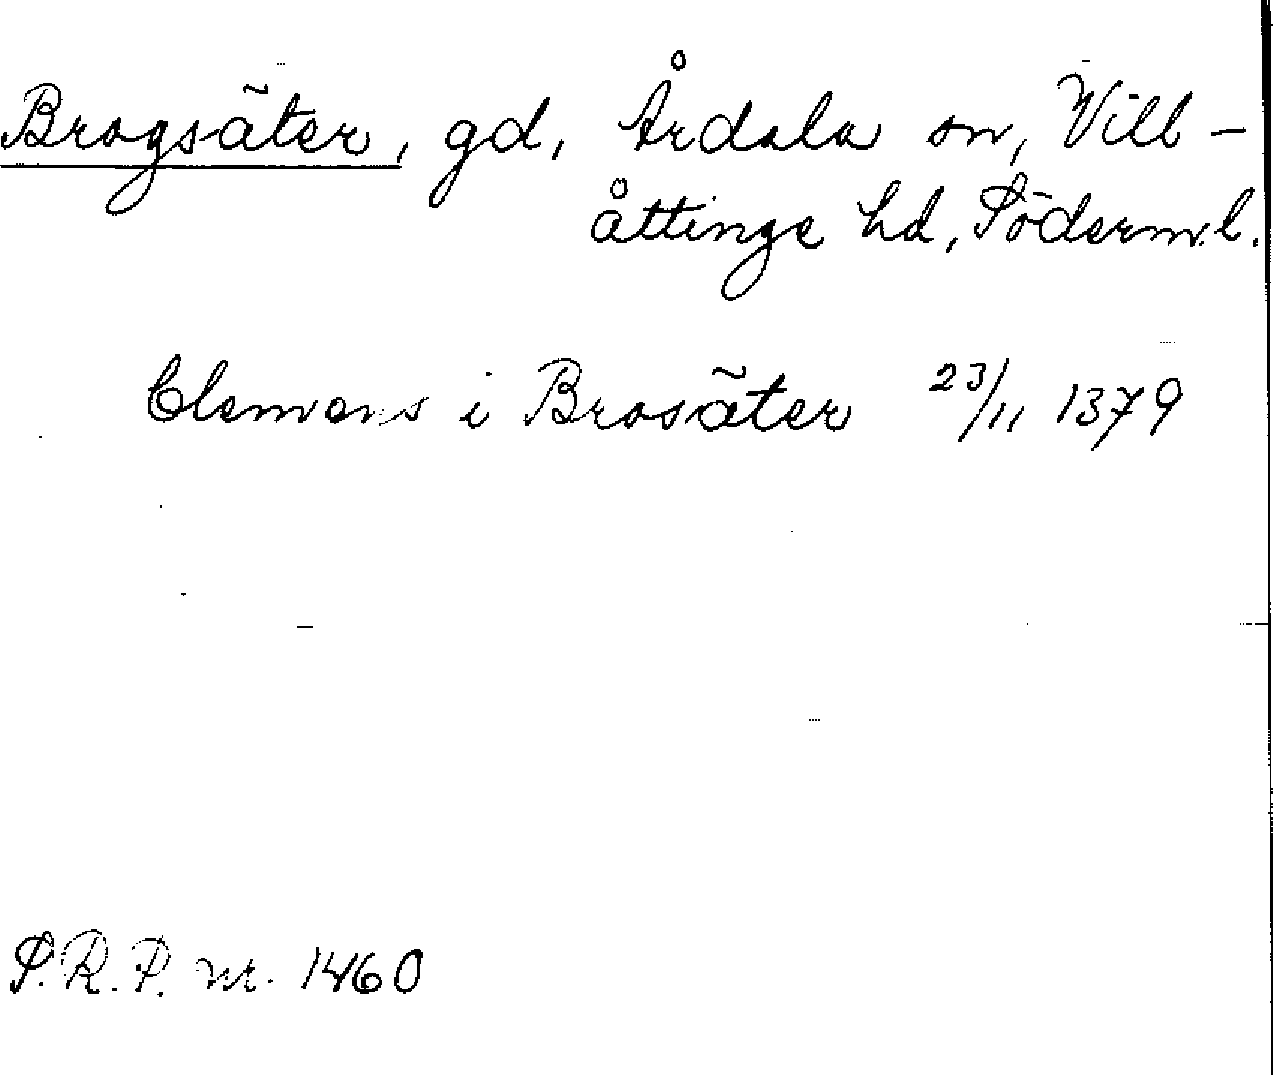 Brogsäter, gd, Årdala sn, Vill-
åttinge hd, Söderml.
Clemens i Brosäter 23/11 1379
S.R.P. nr. 1460